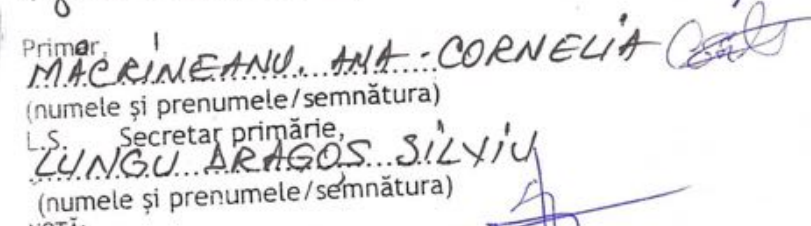 Primar,
MACRINEANU. ANA-CORNELIA
(numele și prenumele/semnătura)
L.S. Secretar primărie,
LUNGU DRAGOȘ SILVIU
(numele și prenumele/semnătura)
NOTĂ: